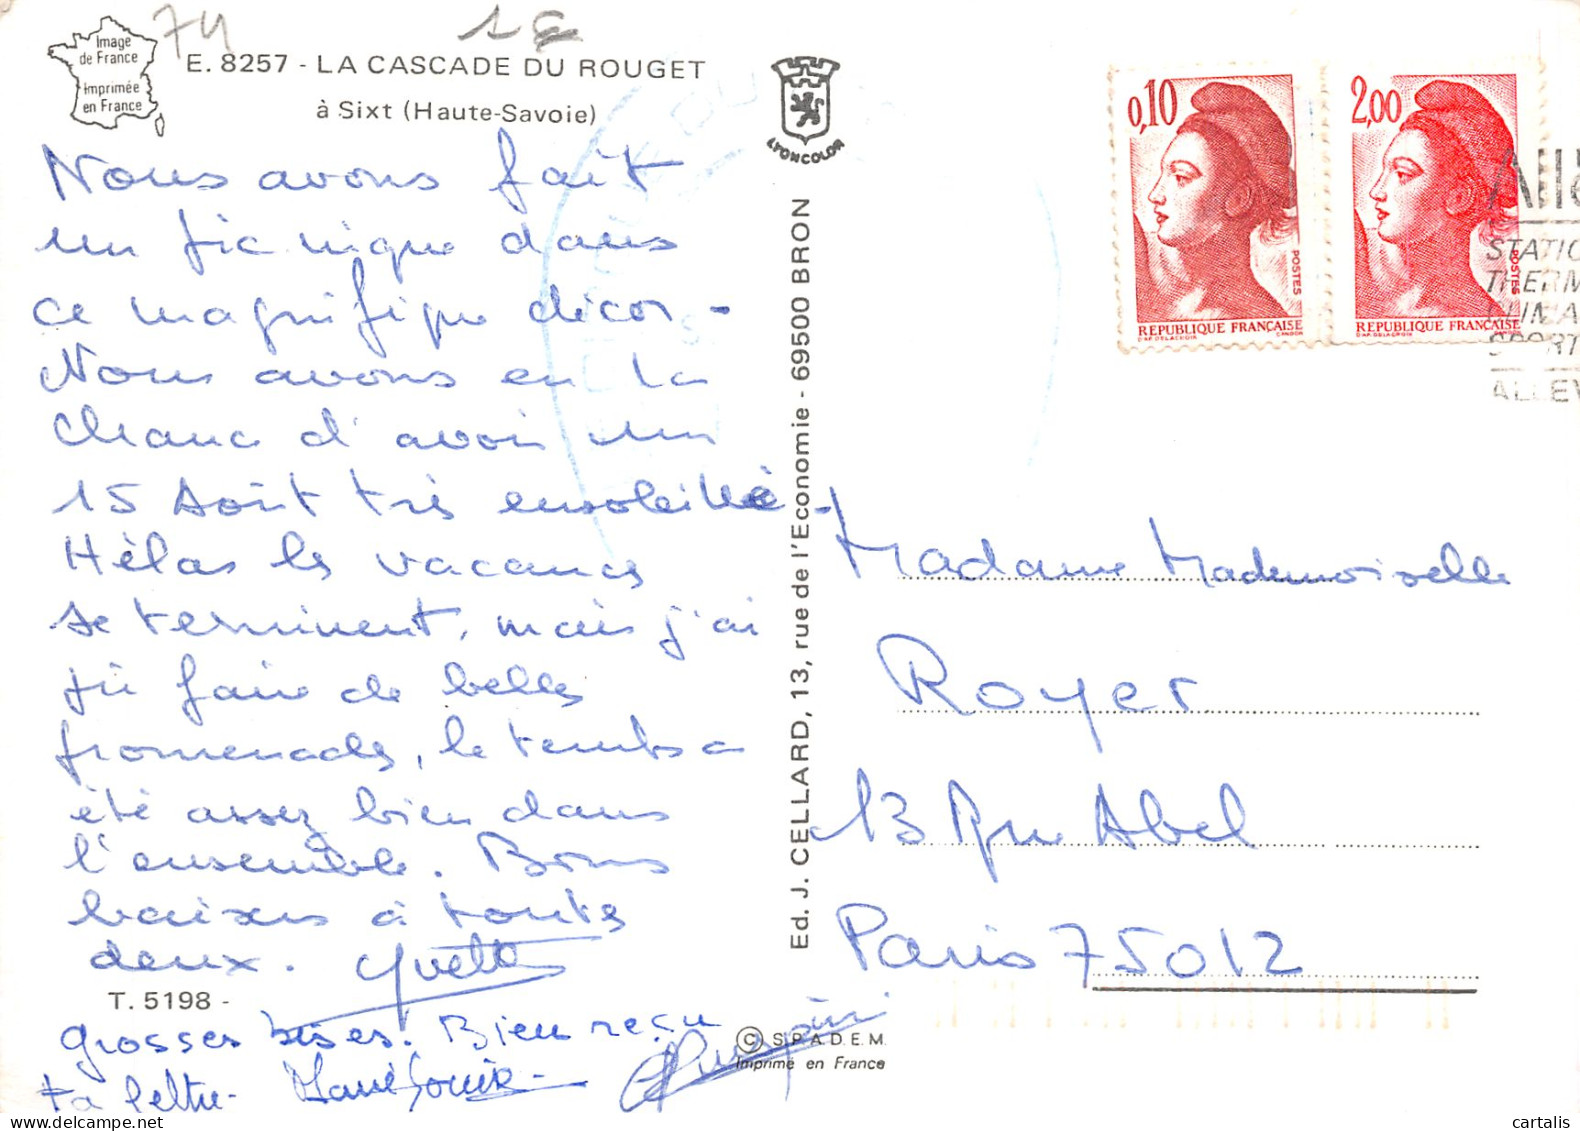 74
Image
de France
Imprimée
en France
E. 8257 - LA CASCADE DU ROUGET
à Sixt (Haute-Savoie)
Nous avons fait
un pic nique dans
ce magnifique décor -
Nous avons eu la
chance d'avoir un
15 Août très ensoleillé -
Hélas les vacances
se terminent, mais j'ai
pu faire de belles
promenades, le temps a
été assez bien dans
l'ensemble. Bons
baisers à toutes
deux. Yvette
T. 5198 -
grosses bises. Bien reçu
ta lettre -
LYONCOLOR
Ed. J. CELLARD, 13, rue de l'Economie - 69500 BRON
© S.P.A.D.E.M.
Imprimé en France
0,10
POSTES
REPUBLIQUE FRANÇAISE
D'AP. DELACROIX
GANDON
2,00
POSTES
REPUBLIQUE FRANÇAISE
D'AP. DELACROIX
GANDON
Alle
STATIO
THERM
CLIMA
SPORT
ALLEV
Madame Mademoiselle
Royer
13 Rue Abel
Paris 75012
cartalis